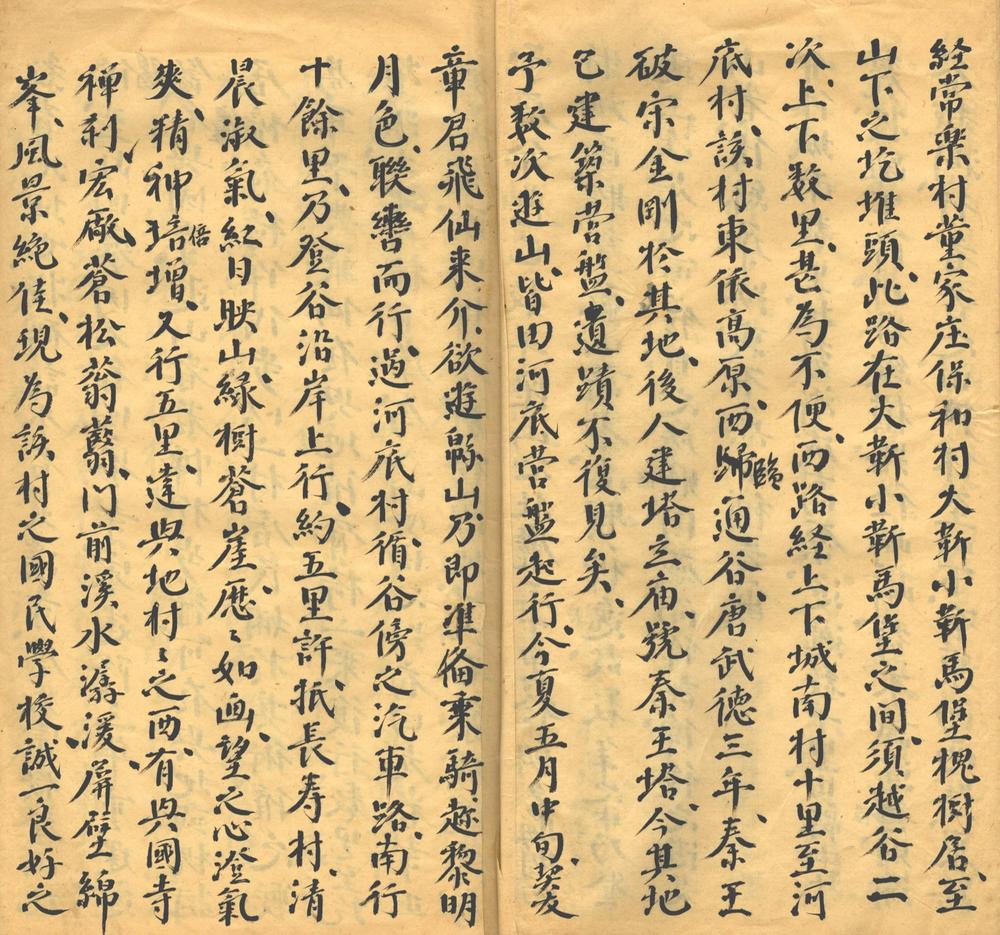 経常樂村董家庄保和村大靳小靳馬堡槐樹居、至
山下之圪堆頭、此路在大靳小靳馬堡之间、须越谷二
次、上下数里、甚為不便、西路経上下城南村十里至河
底村、該村東依高原、西歸臨通谷、唐武德三年、秦王
破宗金剛於其地、後人建塔立庙、號秦王塔、今其地
已建築营盤、遺蹟不復見矣、
予数次遊山、皆由河底营盤起行、今夏五月中旬、契友
章君飛仙来介、欲遊緜山、乃即準備乘騎、趁黎明
月色、聯轡而行、過河底村、循谷傍之汽車路、南行
十餘里、乃登谷沿岸上行、約五里許、抵長寿村、清
晨淑氣、紅日映山、緑樹蒼崖、歷々如画、望之心澄氣
爽、精神培倍增、又行五里、達興地村々之西、有興國寺
禅刹宏敞、蒼松蓊翳、门前溪水潺湲、屏壁綿
峯、風景絶佳、現為該村之國民學校、誠一良好之